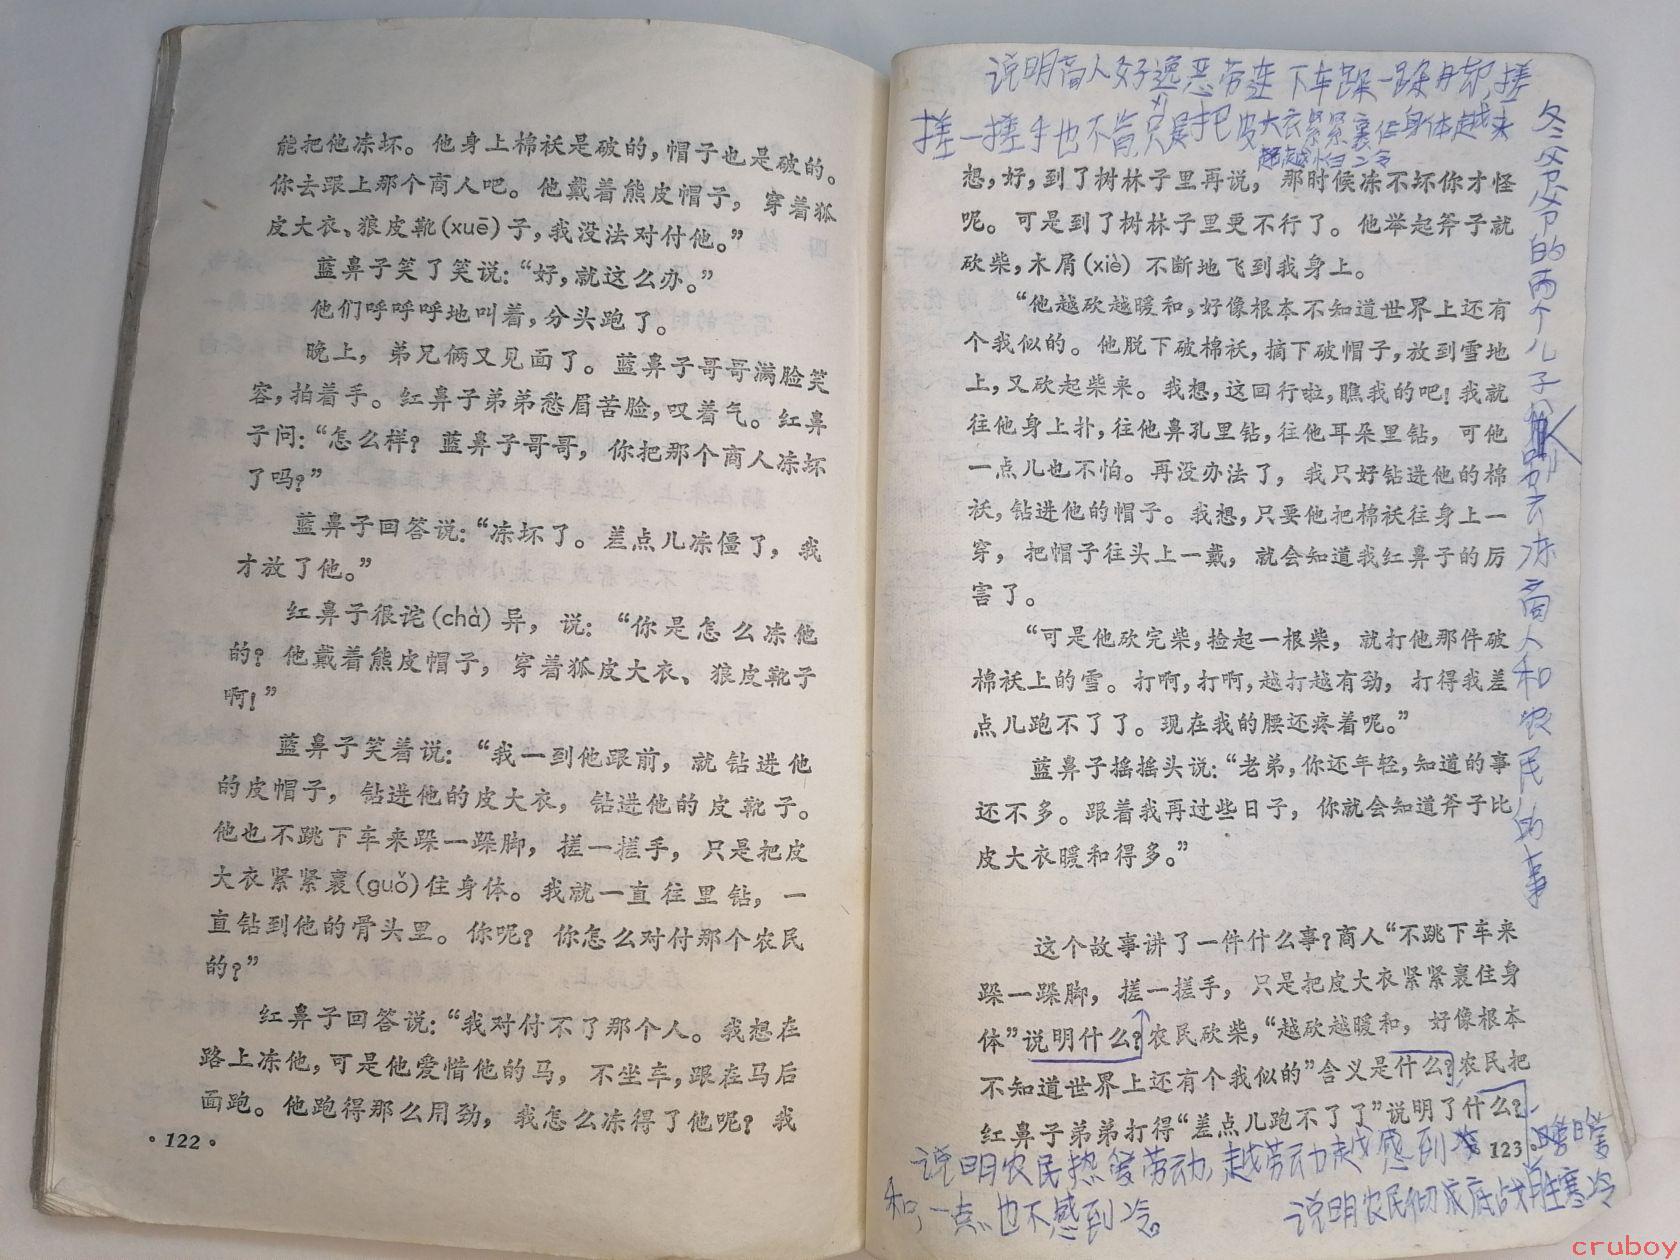 能把他冻坏。他身上棉袄是破的，帽子也是破的。
你去跟上那个商人吧。他戴着熊皮帽子，穿着狐
皮大衣、狼皮靴(xuē)子，我没法对付他。”
蓝鼻子笑了笑说：“好，就这么办。”
他们呼呼呼地叫着，分头跑了。
晚上，弟兄俩又见面了。蓝鼻子哥哥满脸笑
容，拍着手。红鼻子弟弟愁眉苦脸，叹着气。红鼻
子问：“怎么样？蓝鼻子哥哥，你把那个商人冻坏
了吗？”
蓝鼻子回答说：“冻坏了。差点儿冻僵了，我
才放了他。”
红鼻子很诧(chà)异，说：“你是怎么冻他
的？他戴着熊皮帽子，穿着狐皮大衣、狼皮靴子
啊！”
蓝鼻子笑着说：“我一到他跟前，就钻进他
的皮帽子，钻进他的皮大衣，钻进他的皮靴子。
他也不跳下车来跺一跺脚，搓一搓手，只是把皮
大衣紧紧裹(guǒ)住身体。我就一直往里钻，一
直钻到他的骨头里。你呢？你怎么对付那个农民
的？”
红鼻子回答说：“我对付不了那个人。我想在
路上冻他，可是他爱惜他的马，不坐车，跟在马后
面跑。他跑得那么用劲，我怎么冻得了他呢？我
·122·
说明商人好逸恶劳连下车跺一跺脚，搓
搓一搓手也不肯，只是把皮大衣紧紧裹住身体越来
越怕冷
想，好，到了树林子里再说，那时候冻不坏你才怪
呢。可是到了树林子里更不行了。他举起斧子就
砍柴，木屑(xiè)不断地飞到我身上。
“他越砍越暖和，好像根本不知道世界上还有
个我似的。他脱下破棉袄，摘下破帽子，放到雪地
上，又砍起柴来。我想，这回行啦，瞧我的吧！我就
往他身上扑，往他鼻孔里钻，往他耳朵里钻，可他
一点儿也不怕。再没办法了，我只好钻进他的棉
袄，钻进他的帽子。我想，只要他把棉袄往身上一
穿，把帽子往头上一戴，就会知道我红鼻子的厉
害了。
“可是他砍完柴，捡起一根柴，就打他那件破
棉袄上的雪。打啊，打啊，越打越有劲，打得我差
点儿跑不了了。现在我的腰还疼着呢。”
蓝鼻子摇摇头说：“老弟，你还年轻，知道的事
还不多。跟着我再过些日子，你就会知道斧子比
皮大衣暖和得多。”
这个故事讲了一件什么事？商人“不跳下车来
跺一跺脚，搓一搓手，只是把皮大衣紧紧裹住身
体”说明什么？农民砍柴，“越砍越暖和，好像根本
不知道世界上还有个我似的”含义是什么？农民把
红鼻子弟弟打得“差点儿跑不了了”说明了什么？
123
冬爷爷的两个儿子分别去冻商人和农民的事
说明农民热爱劳动，越劳动越感到暖
和，一点儿也不感到冷。
说明农民彻底战胜寒冷
cruboy